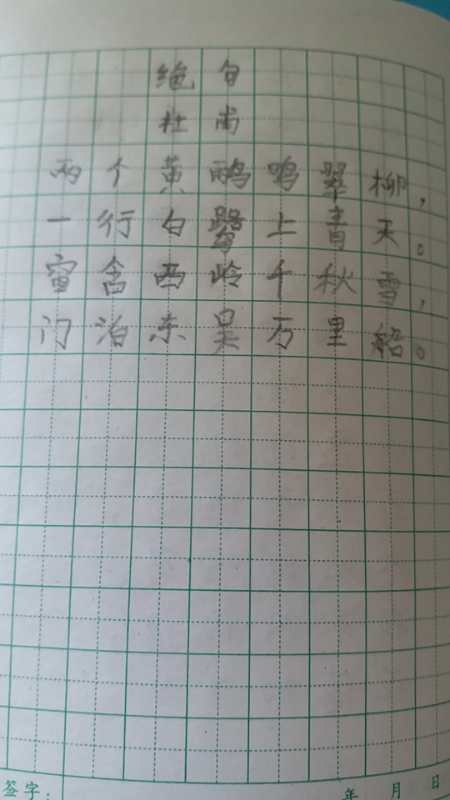 绝句
杜甫
两个黄鹂鸣翠柳，
一行白鹭上青天。
窗含西岭千秋雪，
门泊东吴万里船。
签字： 年 月 日